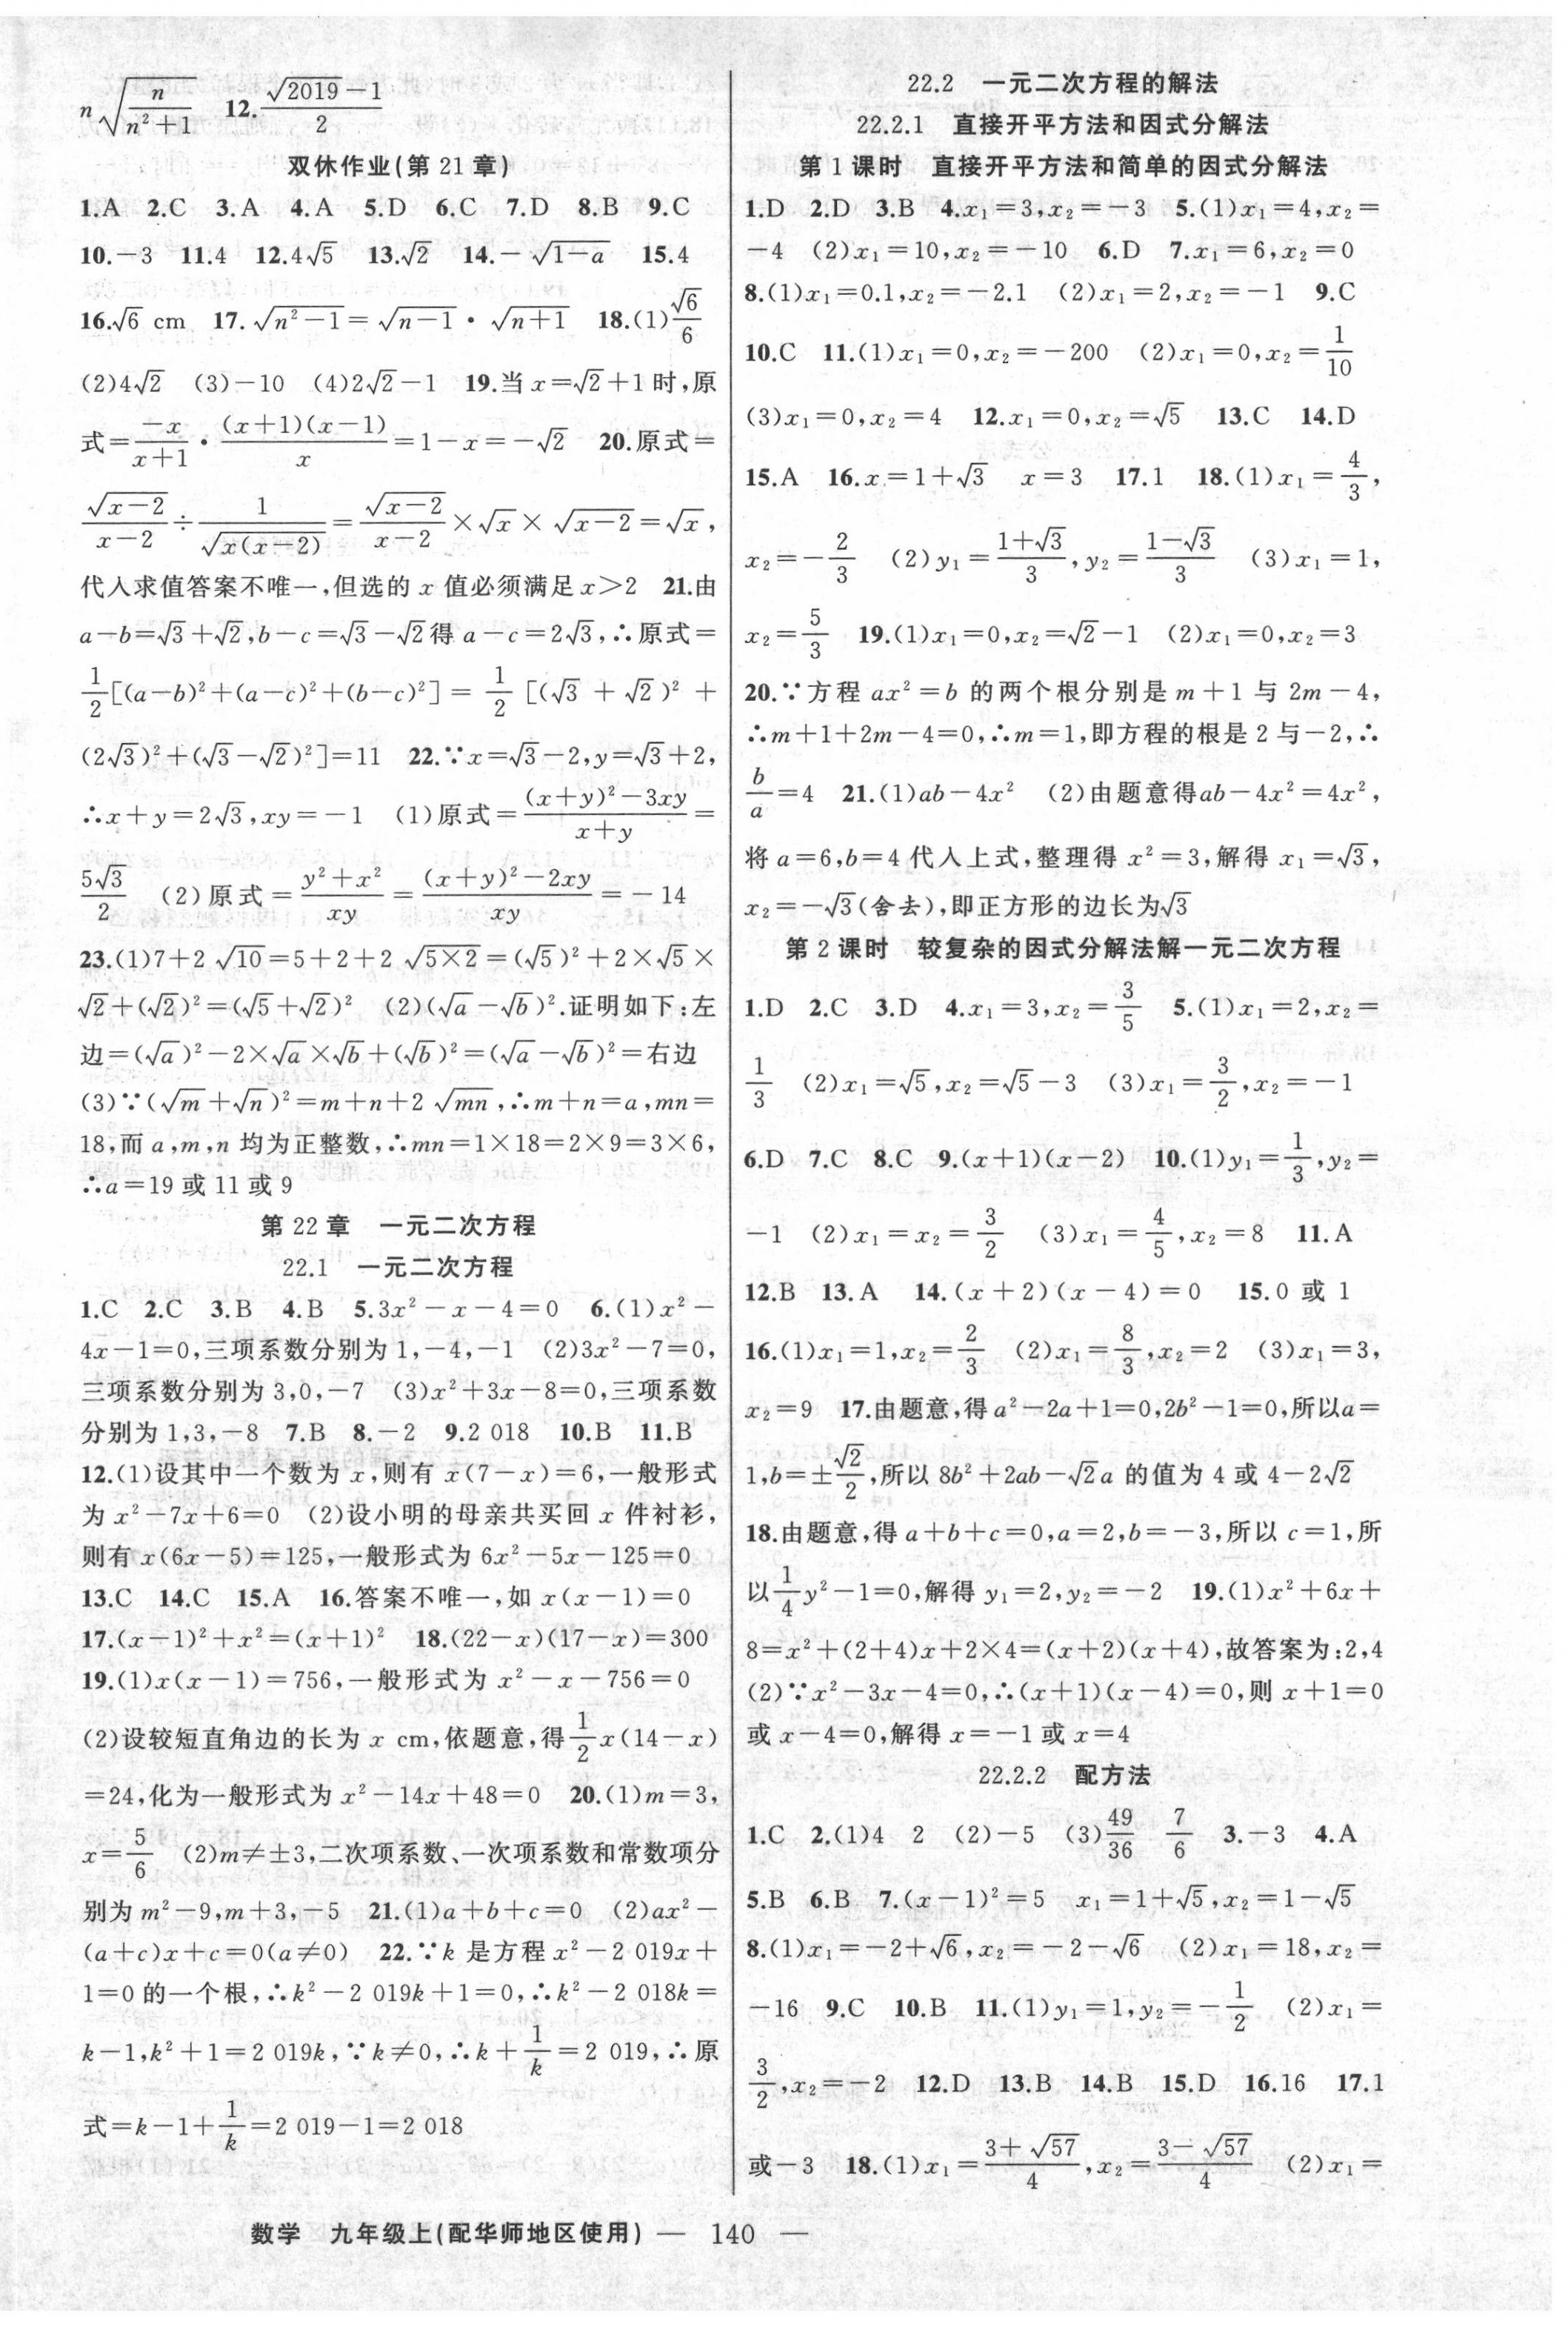 n√(n/(n²+1))　12.(√2019−1)/2
双休作业(第 21 章)
1.A　2.C　3.A　4.A　5.D　6.C　7.D　8.B　9.C
10.−3　11.4　12.4√5　13.√2　14.−√(1−a)　15.4
16.√6 cm　17.√(n²−1)=√(n−1)·√(n+1)　18.(1)√6/6
(2)4√2　(3)−10　(4)2√2−1　19.当 x=√2+1 时,原
式=(−x)/(x+1)·((x+1)(x−1))/x=1−x=−√2　20.原式=
√(x−2)/(x−2)÷1/√(x(x−2))=√(x−2)/(x−2)×√x×√(x−2)=√x,
代入求值答案不唯一,但选的 x 值必须满足 x>2　21.由
a−b=√3+√2,b−c=√3−√2得 a−c=2√3,∴原式=
1/2[(a−b)²+(a−c)²+(b−c)²]=1/2[(√3+√2)²+
(2√3)²+(√3−√2)²]=11　22.∵x=√3−2,y=√3+2,
∴x+y=2√3,xy=−1　(1)原式=((x+y)²−3xy)/(x+y)=
5√3/2　(2)原式=(y²+x²)/xy=((x+y)²−2xy)/xy=−14
23.(1)7+2√10=5+2+2√(5×2)=(√5)²+2×√5×
√2+(√2)²=(√5+√2)²　(2)(√a−√b)².证明如下:左
边=(√a)²−2×√a×√b+(√b)²=(√a−√b)²=右边
(3)∵(√m+√n)²=m+n+2√mn,∴m+n=a,mn=
18,而 a,m,n 均为正整数,∴mn=1×18=2×9=3×6,
∴a=19 或 11 或 9
第 22 章　一元二次方程
22.1　一元二次方程
1.C　2.C　3.B　4.B　5.3x²−x−4=0　6.(1)x²−
4x−1=0,三项系数分别为 1,−4,−1　(2)3x²−7=0,
三项系数分别为 3,0,−7　(3)x²+3x−8=0,三项系数
分别为 1,3,−8　7.B　8.−2　9.2 018　10.B　11.B
12.(1)设其中一个数为 x,则有 x(7−x)=6,一般形式
为 x²−7x+6=0　(2)设小明的母亲共买回 x 件衬衫,
则有 x(6x−5)=125,一般形式为 6x²−5x−125=0
13.C　14.C　15.A　16.答案不唯一,如 x(x−1)=0
17.(x−1)²+x²=(x+1)²　18.(22−x)(17−x)=300
19.(1)x(x−1)=756,一般形式为 x²−x−756=0
(2)设较短直角边的长为 x cm,依题意,得1/2x(14−x)
=24,化为一般形式为 x²−14x+48=0　20.(1)m=3,
x=5/6　(2)m≠±3,二次项系数、一次项系数和常数项分
别为 m²−9,m+3,−5　21.(1)a+b+c=0　(2)ax²−
(a+c)x+c=0(a≠0)　22.∵k 是方程 x²−2 019x+
1=0 的一个根,∴k²−2 019k+1=0,∴k²−2 018k=
k−1,k²+1=2 019k,∵k≠0,∴k+1/k=2 019,∴原
式=k−1+1/k=2 019−1=2 018
22.2　一元二次方程的解法
22.2.1　直接开平方法和因式分解法
第 1 课时　直接开平方法和简单的因式分解法
1.D　2.D　3.B　4.x₁=3,x₂=−3　5.(1)x₁=4,x₂=
−4　(2)x₁=10,x₂=−10　6.D　7.x₁=6,x₂=0
8.(1)x₁=0.1,x₂=−2.1　(2)x₁=2,x₂=−1　9.C
10.C　11.(1)x₁=0,x₂=−200　(2)x₁=0,x₂=1/10
(3)x₁=0,x₂=4　12.x₁=0,x₂=√5　13.C　14.D
15.A　16.x=1+√3　x=3　17.1　18.(1)x₁=4/3,
x₂=−2/3　(2)y₁=(1+√3)/3,y₂=(1−√3)/3　(3)x₁=1,
x₂=5/3　19.(1)x₁=0,x₂=√2−1　(2)x₁=0,x₂=3
20.∵方程 ax²=b 的两个根分别是 m+1 与 2m−4,
∴m+1+2m−4=0,∴m=1,即方程的根是 2 与−2,∴
b/a=4　21.(1)ab−4x²　(2)由题意得ab−4x²=4x²,
将 a=6,b=4 代入上式,整理得 x²=3,解得 x₁=√3,
x₂=−√3(舍去),即正方形的边长为√3
第 2 课时　较复杂的因式分解法解一元二次方程
1.D　2.C　3.D　4.x₁=3,x₂=3/5　5.(1)x₁=2,x₂=
1/3　(2)x₁=√5,x₂=√5−3　(3)x₁=3/2,x₂=−1
6.D　7.C　8.C　9.(x+1)(x−2)　10.(1)y₁=1/3,y₂=
−1　(2)x₁=x₂=3/2　(3)x₁=4/5,x₂=8　11.A
12.B　13.A　14.(x+2)(x−4)=0　15.0 或 1
16.(1)x₁=1,x₂=2/3　(2)x₁=8/3,x₂=2　(3)x₁=3,
x₂=9　17.由题意,得 a²−2a+1=0,2b²−1=0,所以a=
1,b=±√2/2,所以 8b²+2ab−√2a 的值为 4 或 4−2√2
18.由题意,得 a+b+c=0,a=2,b=−3,所以 c=1,所
以1/4y²−1=0,解得 y₁=2,y₂=−2　19.(1)x²+6x+
8=x²+(2+4)x+2×4=(x+2)(x+4),故答案为:2,4
(2)∵x²−3x−4=0,∴(x+1)(x−4)=0,则 x+1=0
或 x−4=0,解得 x=−1 或 x=4
22.2.2　配方法
1.C　2.(1)4　2　(2)−5　(3)49/36　7/6　3.−3　4.A
5.B　6.B　7.(x−1)²=5　x₁=1+√5,x₂=1−√5
8.(1)x₁=−2+√6,x₂=−2−√6　(2)x₁=18,x₂=
−16　9.C　10.B　11.(1)y₁=1,y₂=−1/2　(2)x₁=
3/2,x₂=−2　12.D　13.B　14.B　15.D　16.16　17.1
或−3　18.(1)x₁=(3+√57)/4,x₂=(3−√57)/4　(2)x₁=
数学　九年级上(配华师地区使用) — 140 —